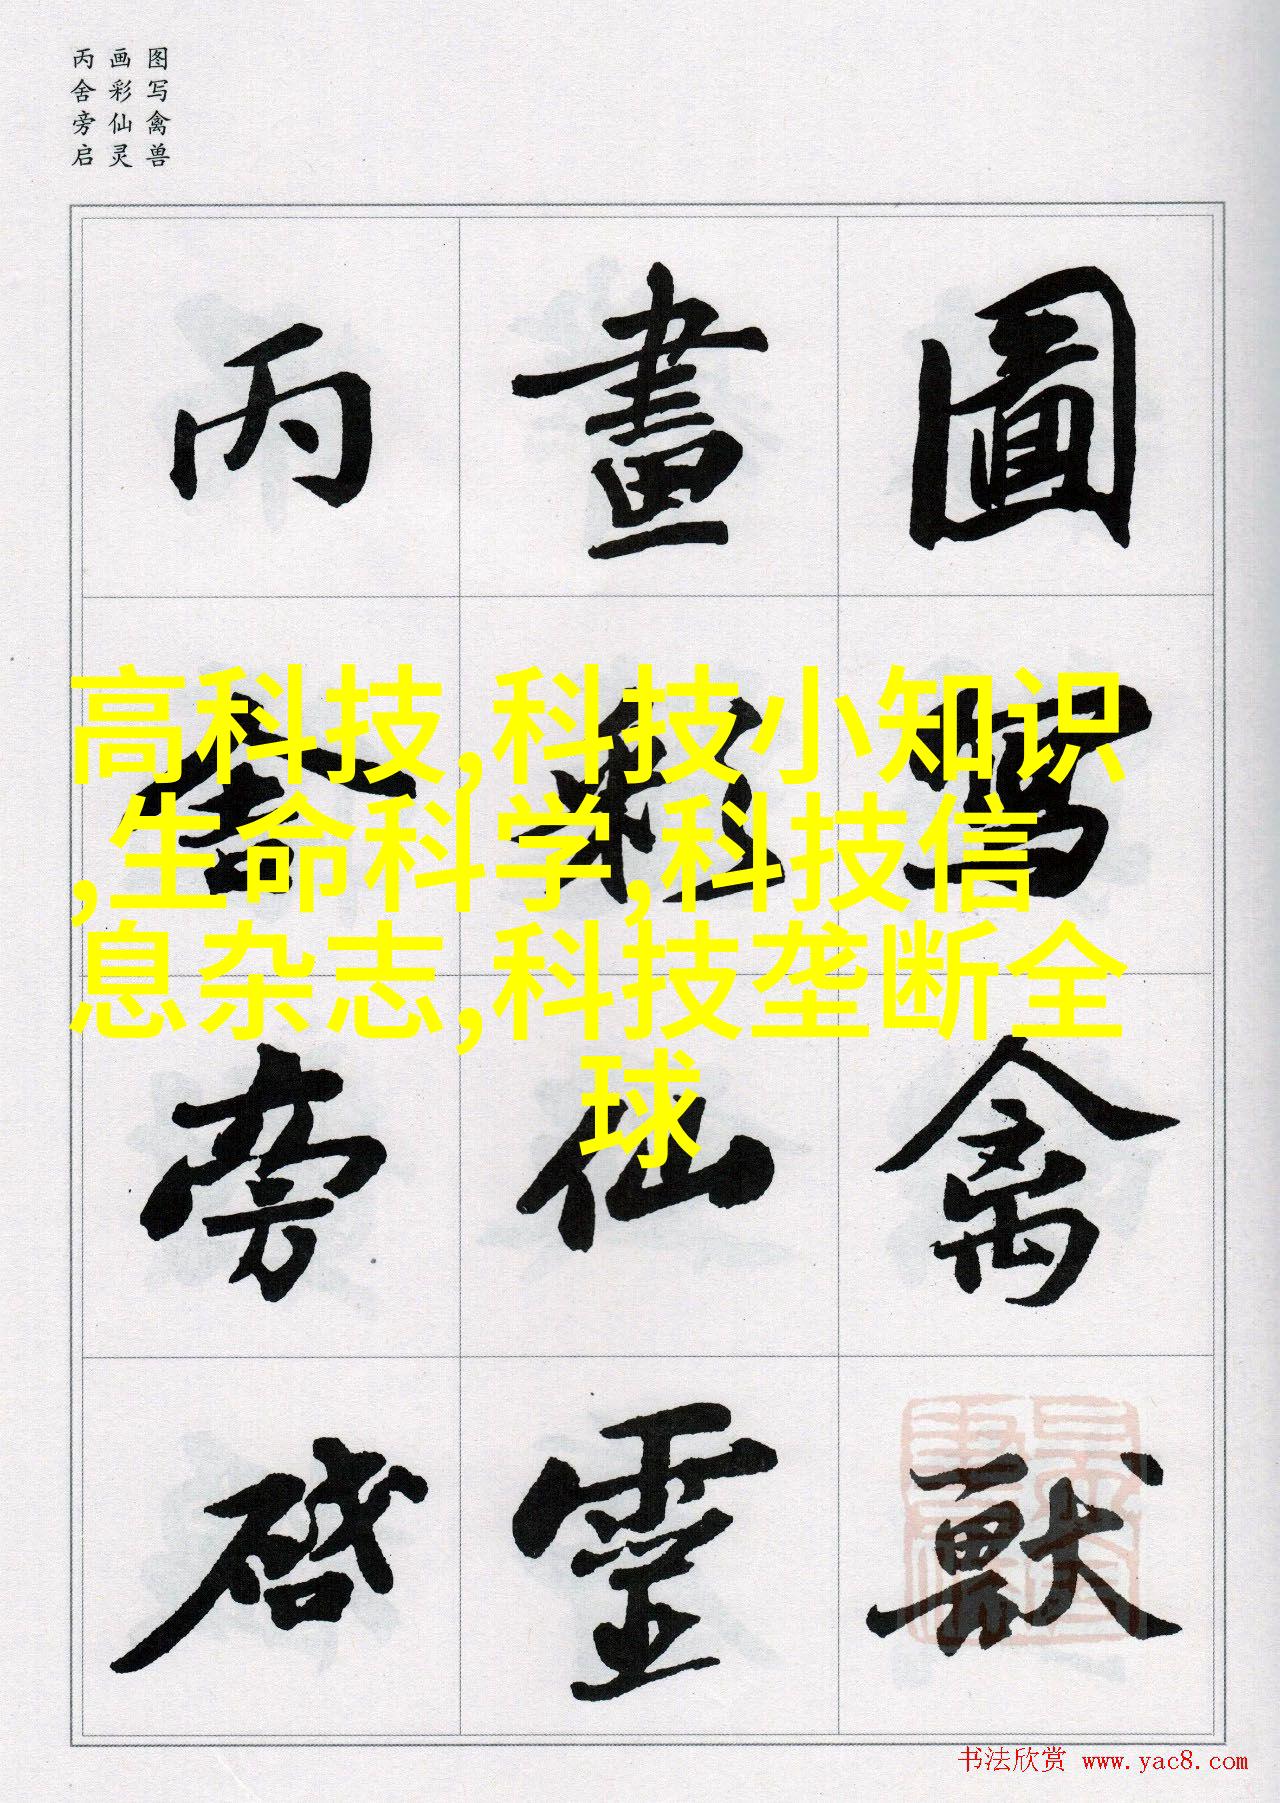 图写禽兽
画彩仙灵
丙舍旁启
圖寫禽獸
畫彩仙靈
丙舍旁啓
高科技,科技小知识
,生命科学,科技信
息杂志,科技垄断全
球
书法欣赏 www.yac8.com